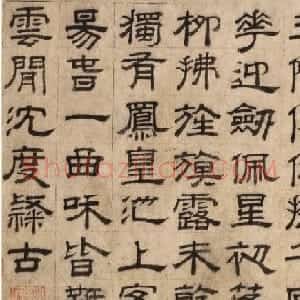 華迎劍佩星初落
柳拂旌旗露未乾
獨有鳳皇池上客
昜旾一曲和皆難
雲間沈度隸古